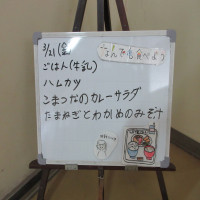 3/21(金)
なんでも食べよう
ごはん(牛乳)
ハムカツ
こまつなのカレーサラダ
たまねぎとわかめのみそ汁